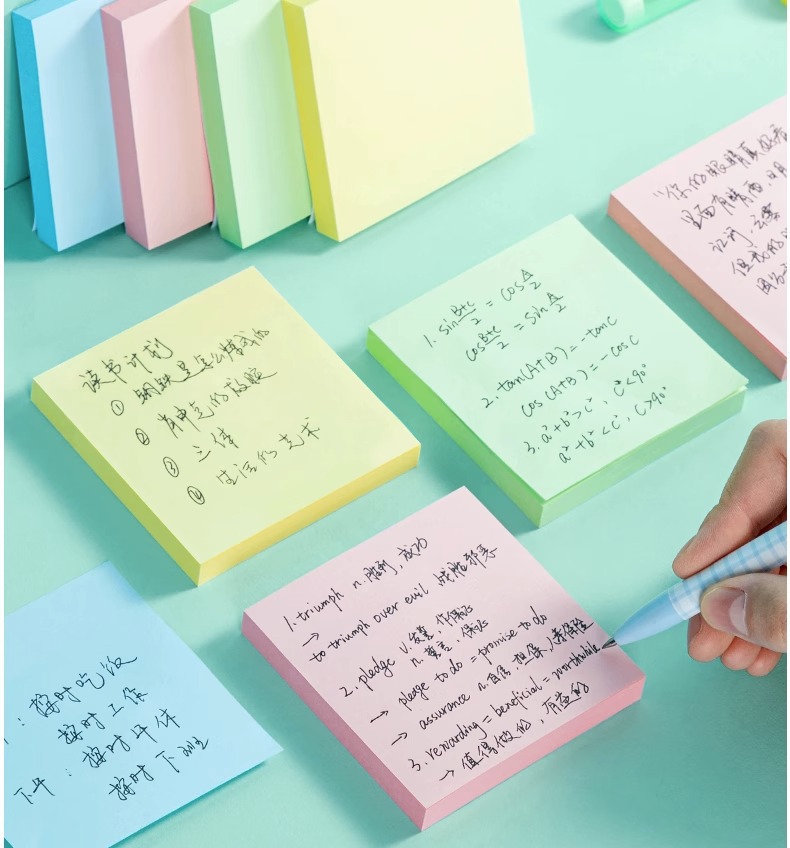 读书计划
① 钢铁是怎么炼成的
② 肩申克的救赎
③ 三体
④ 生活的艺术
1. sin B+C/2 = cos A/2
cos B+C/2 = sin A/2
2. tan(A+B) = -tanC
cos(A+B) = -cosC
3. a²+b²>c², C<90°
a²+b²<c², C>90°
"你的眼睛真好看
里面有晴雨,日月
但我的
1. triumph n.胜利,成功
→
to triumph over evil 战胜邪恶
2. pledge v.发誓,作保证
n.誓言,保证
→ pledge to do = promise to do
→ assurance n.自信,担保,人寿保险
3. rewarding = beneficial = worthwhile
→ 值得做的,有益的
: 按时吃饭
按时工作
下午:按时开件
按时下班